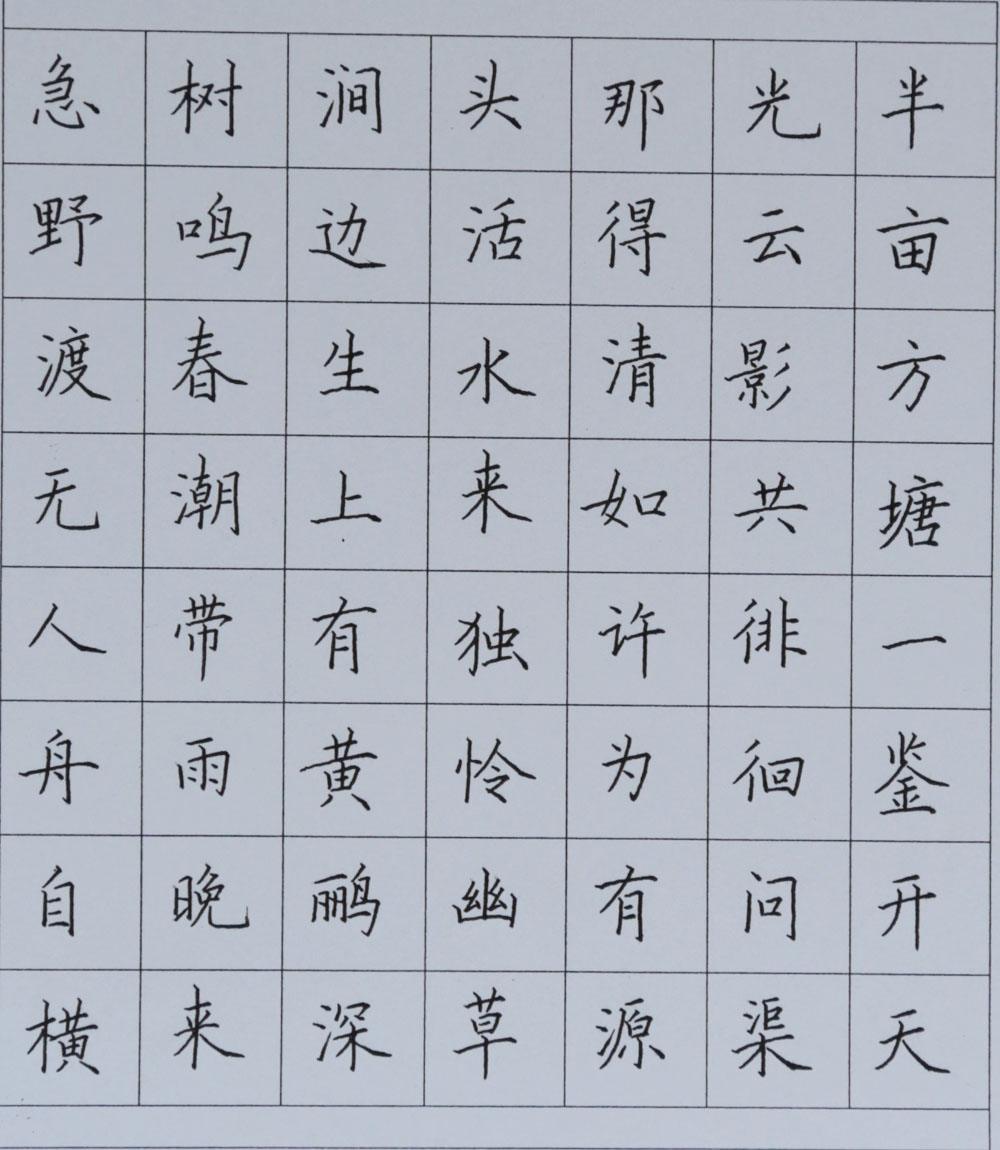 半亩方塘一鉴开天
光云影共徘徊问渠
那得清如许为有源
头活水来独怜幽草
涧边生上有黄鹂深
树鸣春潮带雨晚来
急野渡无人舟自横